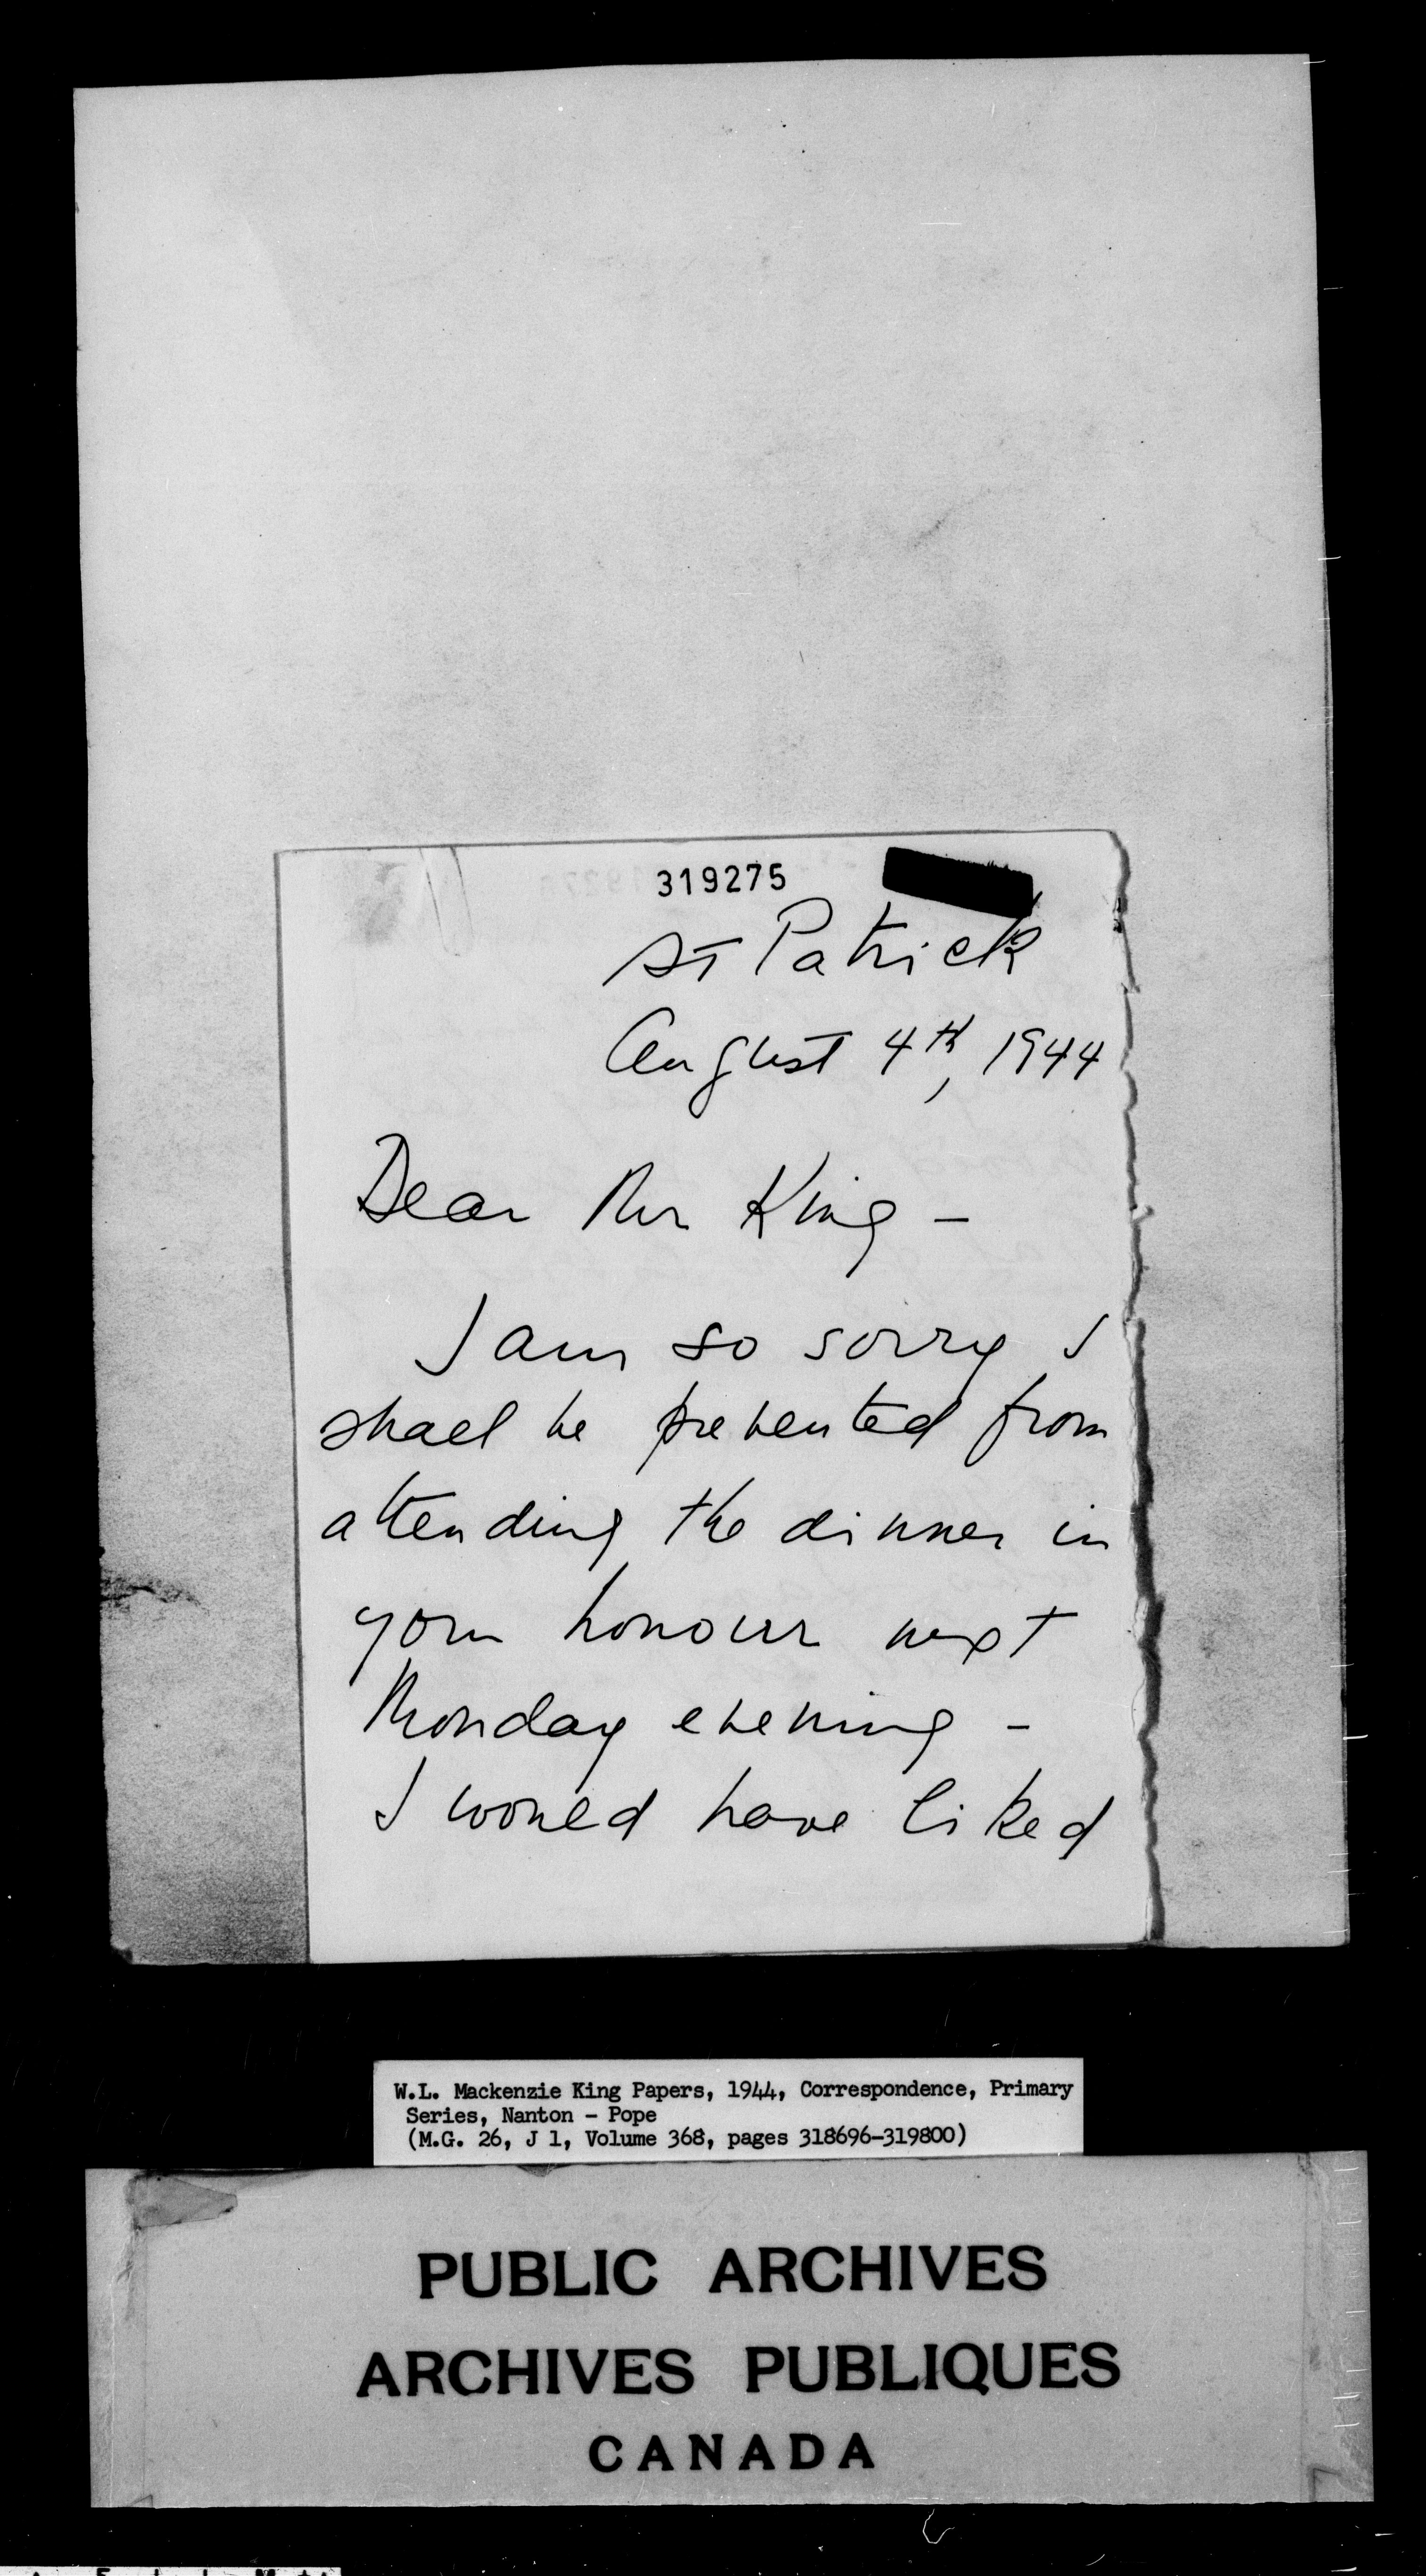 319275
St Patrick
August 4th, 1944
Dear Mr King -
I am so sorry I
shall be prevented from
attending the dinner in
your honour next
Monday evening -
I would have liked
W.L. Mackenzie King Papers, 1944, Correspondence, Primary
Series, Nanton - Pope
(M.G. 26, J 1, Volume 368, pages 318696-319800)
PUBLIC ARCHIVES
ARCHIVES PUBLIQUES
CANADA